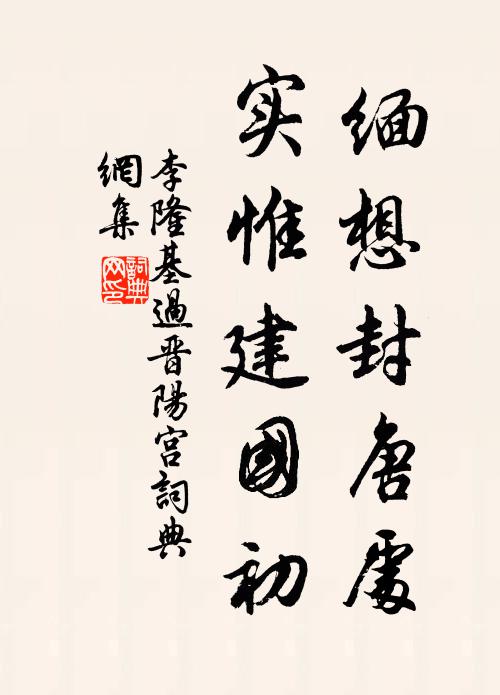 缅想封唐處
实惟建國初
李隆基過晋陽宫詞典
網集
詞典
网印